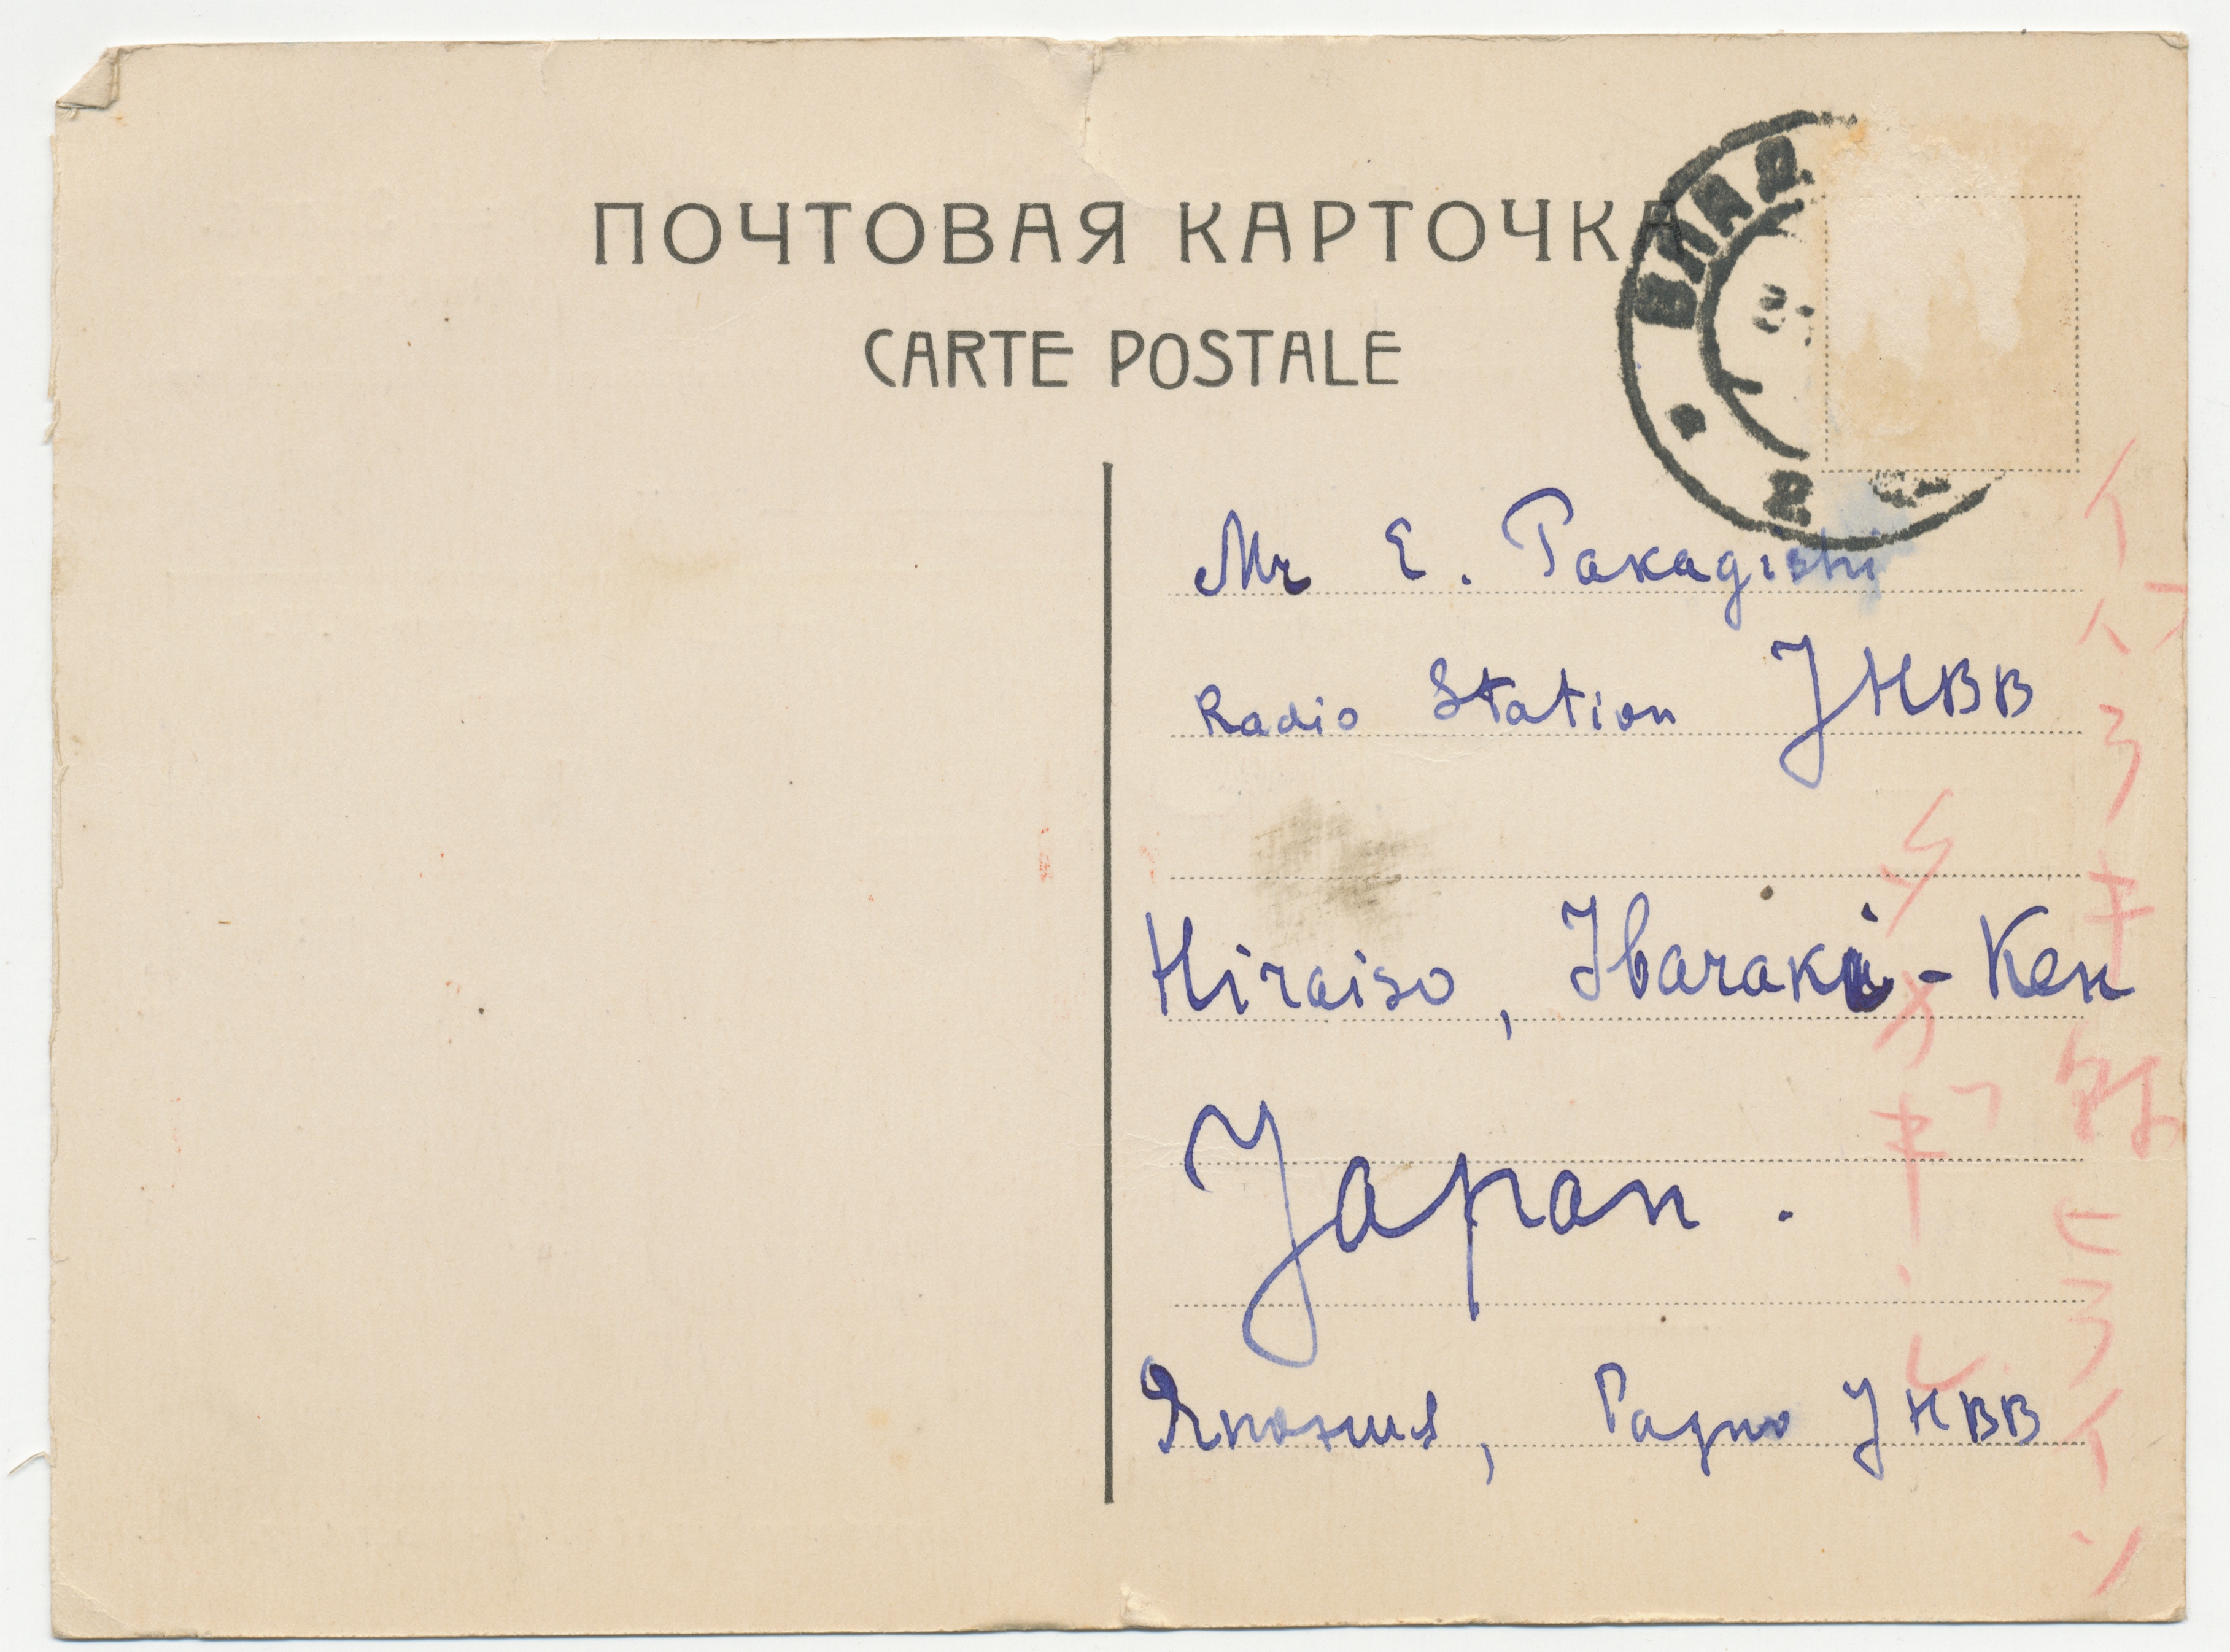 ПОЧТОВАЯ КАРТОЧКА
CARTE POSTALE
ВЛАД
2
Mr E. Takagishi
Radio Station JHBB
Hiraiso, Ibaraki-Ken
Japan.
Япония, Радио JHBB
イバラキ県ヒライソ
タカギシ